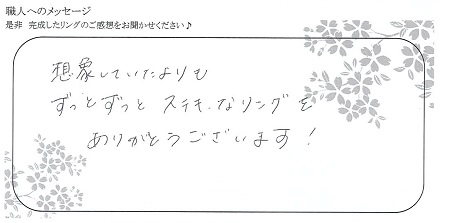 職人へのメッセージ
是非 完成したリングのご感想をお聞かせください♪
想象していたよりも
ずっとずっと ステキなリングを
ありがとうございます!